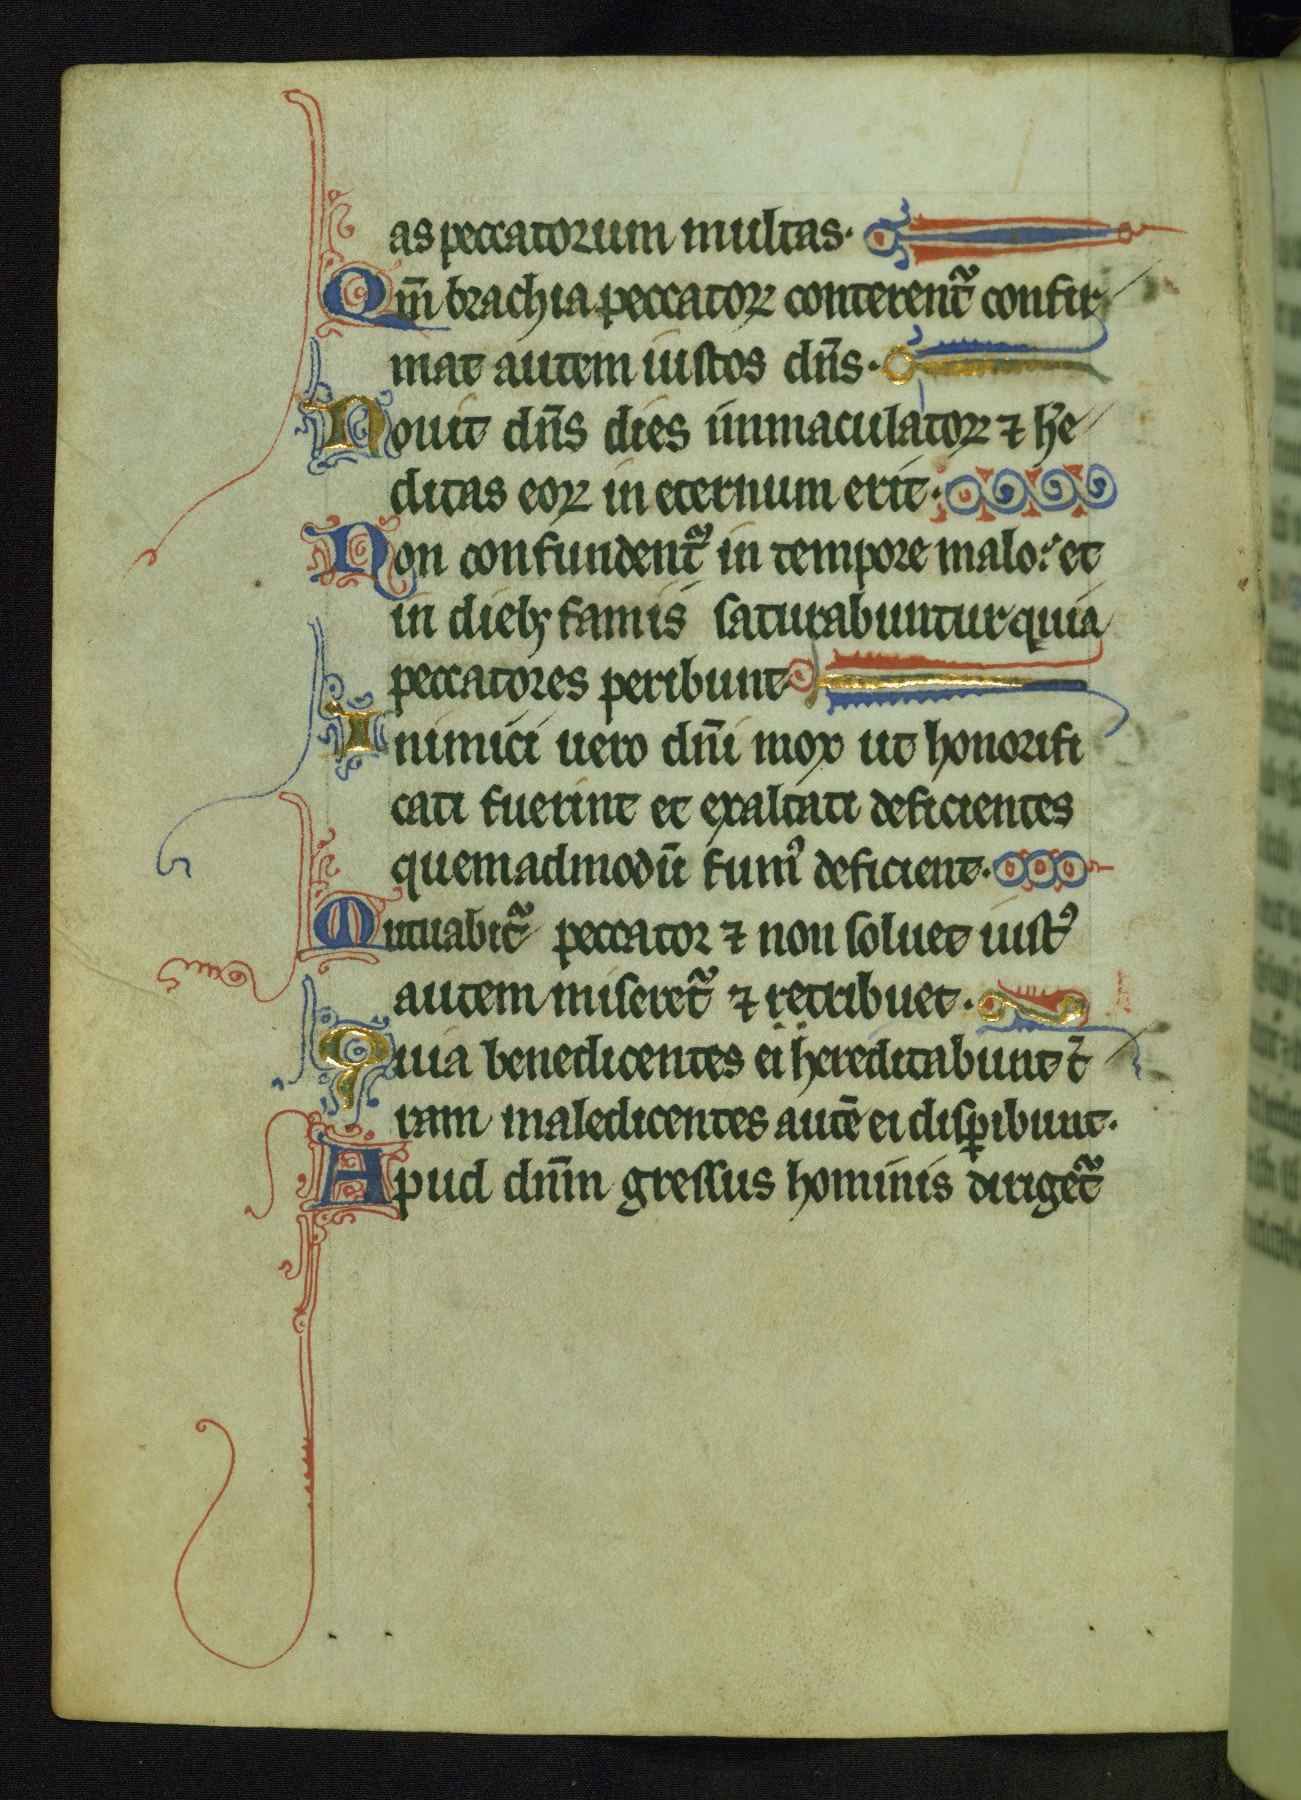 as peccatorum multas·
Qm̅ brachia peccatoꝝ conterent᷑ confir
mat autem iustos dn̅s·
Nouit dn̅s dies inmaculatoꝝ ⁊ he̅
ditas eoꝝ in eternum erit·
Non confundent᷑ in tempore malo: et
in dieb; famis saturabuntur quia
peccatores peribunt
Inimici uero dn̅i mox ut honorifi
cati fuerint et exaltati deficientes
quemadmodu̅ fumꝰ deficient·
Mutuabit᷑ peccator ⁊ non soluet iustꝰ
autem miseret᷑ ⁊ retribuet·
Quia benedicentes ei hereditabunt t̅
ram maledicentes aute̅ ei disꝑibunt·
Apud dn̅m gressus hominis diriget᷑